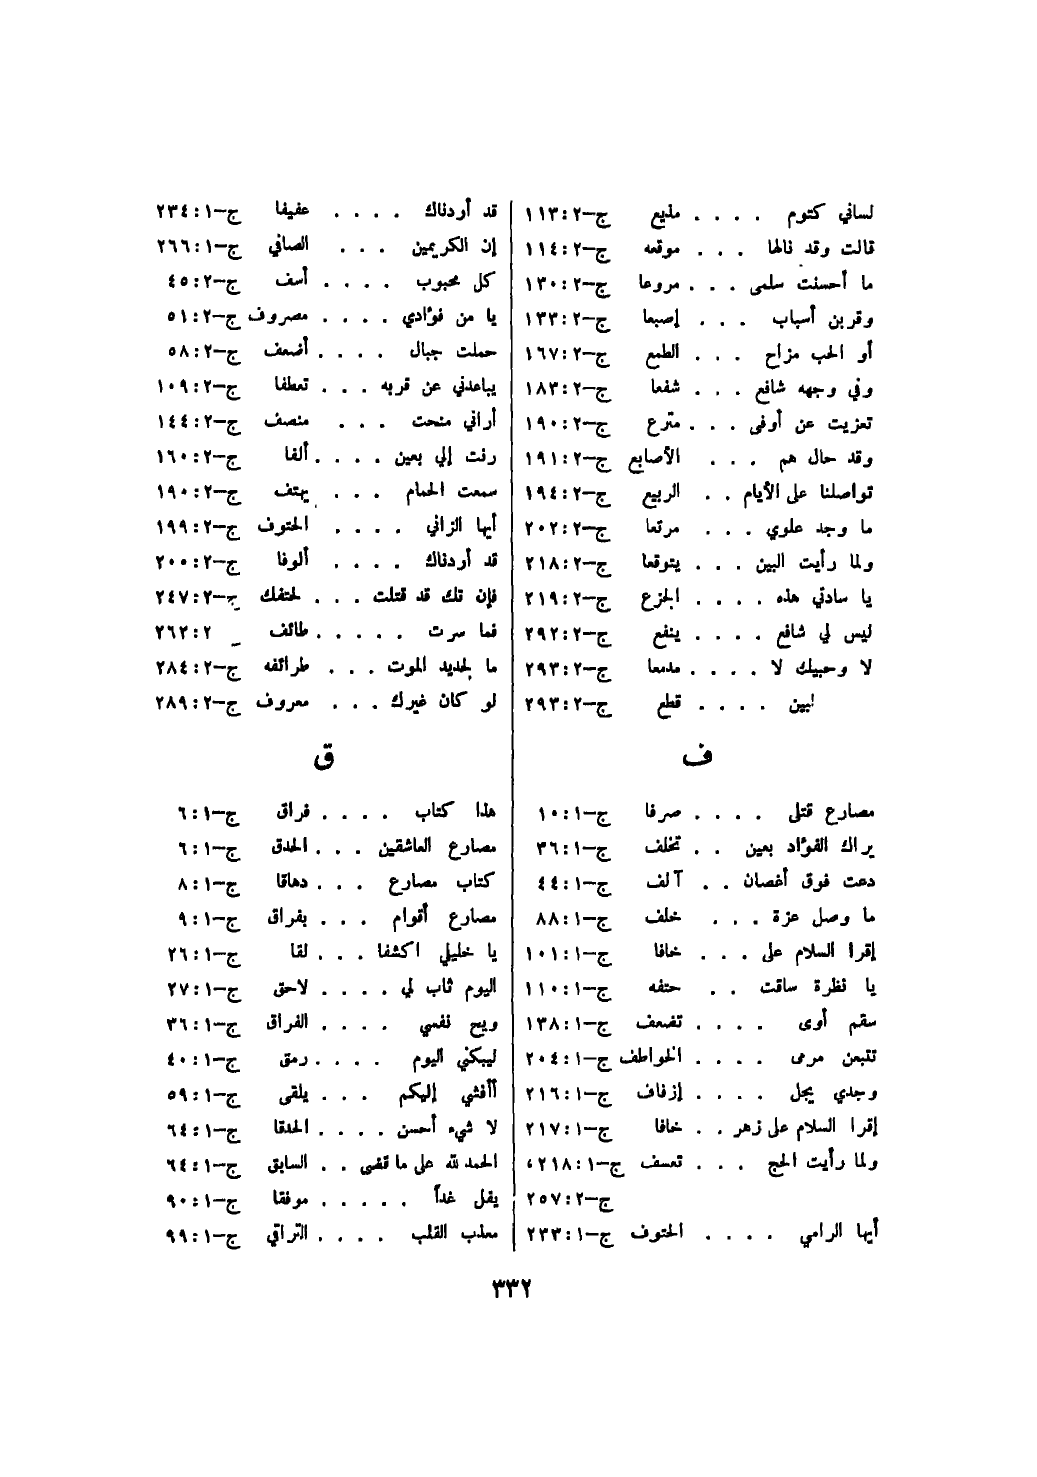 لساني كتوم . . . . مذيع ج–٢ : ١١٣
قالت وقد نالها . . . موقعه ج–٢ : ١١٤
ما أحسنت سلمى . . . مروعا ج–٢ : ١٣٠
وقربن أسباب . . . إصبعا ج–٢ : ١٣٣
أو الحب مزاح . . . الطمع ج–٢ : ١٦٧
وفي وجهه شافع . . . شفعا ج–٢ : ١٨٣
تعزيت عن أوفى . . . مترع ج–٢ : ١٩٠
وقد حال هم . . . الأصابع ج–٢ : ١٩١
تواصلنا على الأيام . . الربيع ج–٢ : ١٩٤
ما وجد علوي . . . مرتعا ج–٢ : ٢٠٢
ولما رأيت البين . . . يتوقعا ج–٢ : ٢١٨
يا سادتي هذه . . . . الجزع ج–٢ : ٢١٩
ليس لي شافع . . . . ينفع ج–٢ : ٢٩٢
لا وحبيك لا . . . . مدمعا ج–٢ : ٢٩٣
لبين . . . . قطع ج–٢ : ٢٩٣
ف
مصارع قتلى . . . . صرفا ج–١ : ١٠
يراك الفؤاد بعين . . تخلف ج–١ : ٣٦
دعت فوق أغصان . . آلف ج–١ : ٤٤
ما وصل عزة . . . خلف ج–١ : ٨٨
إقرا السلام على . . . خافا ج–١ : ١٠١
يا نظرة ساقت . . حتفه ج–١ : ١١٠
سقم أوى . . . . تضعف ج–١ : ١٣٨
تتبعن مرمى . . . . الخواطف ج–١ : ٢٠٤
وجدي يجل . . . . إزفاف ج–١ : ٢١٦
إقرا السلام على زهر . . خافا ج–١ : ٢١٧
ولما رأيت الحج . . . تعسف ج–١ : ٢١٨،
ج–٢ : ٢٥٧
أيها الرامي . . . . الحتوف ج–١ : ٢٣٣
قد أردناك . . . . عفيفا ج–١ : ٢٣٤
إن الكريمين . . . الصافي ج–١ : ٢٦٦
كل محبوب . . . . أسف ج–٢ : ٤٥
يا من فؤادي . . . . مصروف ج–٢ : ٥١
حملت جبال . . . . أضعف ج–٢ : ٥٨
يباعدني عن قربه . . . تعطفا ج–٢ : ١٠٩
أراني منحت . . . منصف ج–٢ : ١٤٤
رنت إلي بعين . . . . ألفا ج–٢ : ١٦٠
سمعت الحمام . . . يهتف ج–٢ : ١٩٠
أيها الزاني . . . . الحتوف ج–٢ : ١٩٩
قد أردناك . . . . ألوفا ج–٢ : ٢٠٠
فإن تك قد قتلت . . . لحتفك ج–٢ : ٢٤٧
فما سرت . . . . . طائف ٢ : ٢٦٢
ما لجديد الموت . . . طرائفه ج–٢ : ٢٨٤
لو كان غيرك . . . معروف ج–٢ : ٢٨٩
ق
هذا كتاب . . . . فراق ج–١ : ٦
مصارع العاشقين . . . الحدق ج–١ : ٦
كتاب مصارع . . . دهاقا ج–١ : ٨
مصارع أقوام . . . بفراق ج–١ : ٩
يا خليلي اكشفا . . . لقا ج–١ : ٢٦
اليوم ثاب لي . . . . لاحق ج–١ : ٢٧
ويح نفسي . . . . الفراق ج–١ : ٣٦
ليبكني اليوم . . . . رمق ج–١ : ٤٠
أأفشي إليكم . . . يلقى ج–١ : ٥٩
لا شيء أحسن . . . . الحدقا ج–١ : ٦٤
الحمد لله على ما قضى . . السابق ج–١ : ٦٤
يقل غداً . . . . . موفقا ج–١ : ٩٠
معذب القلب . . . . التراقي ج–١ : ٩٩
٣٣٢